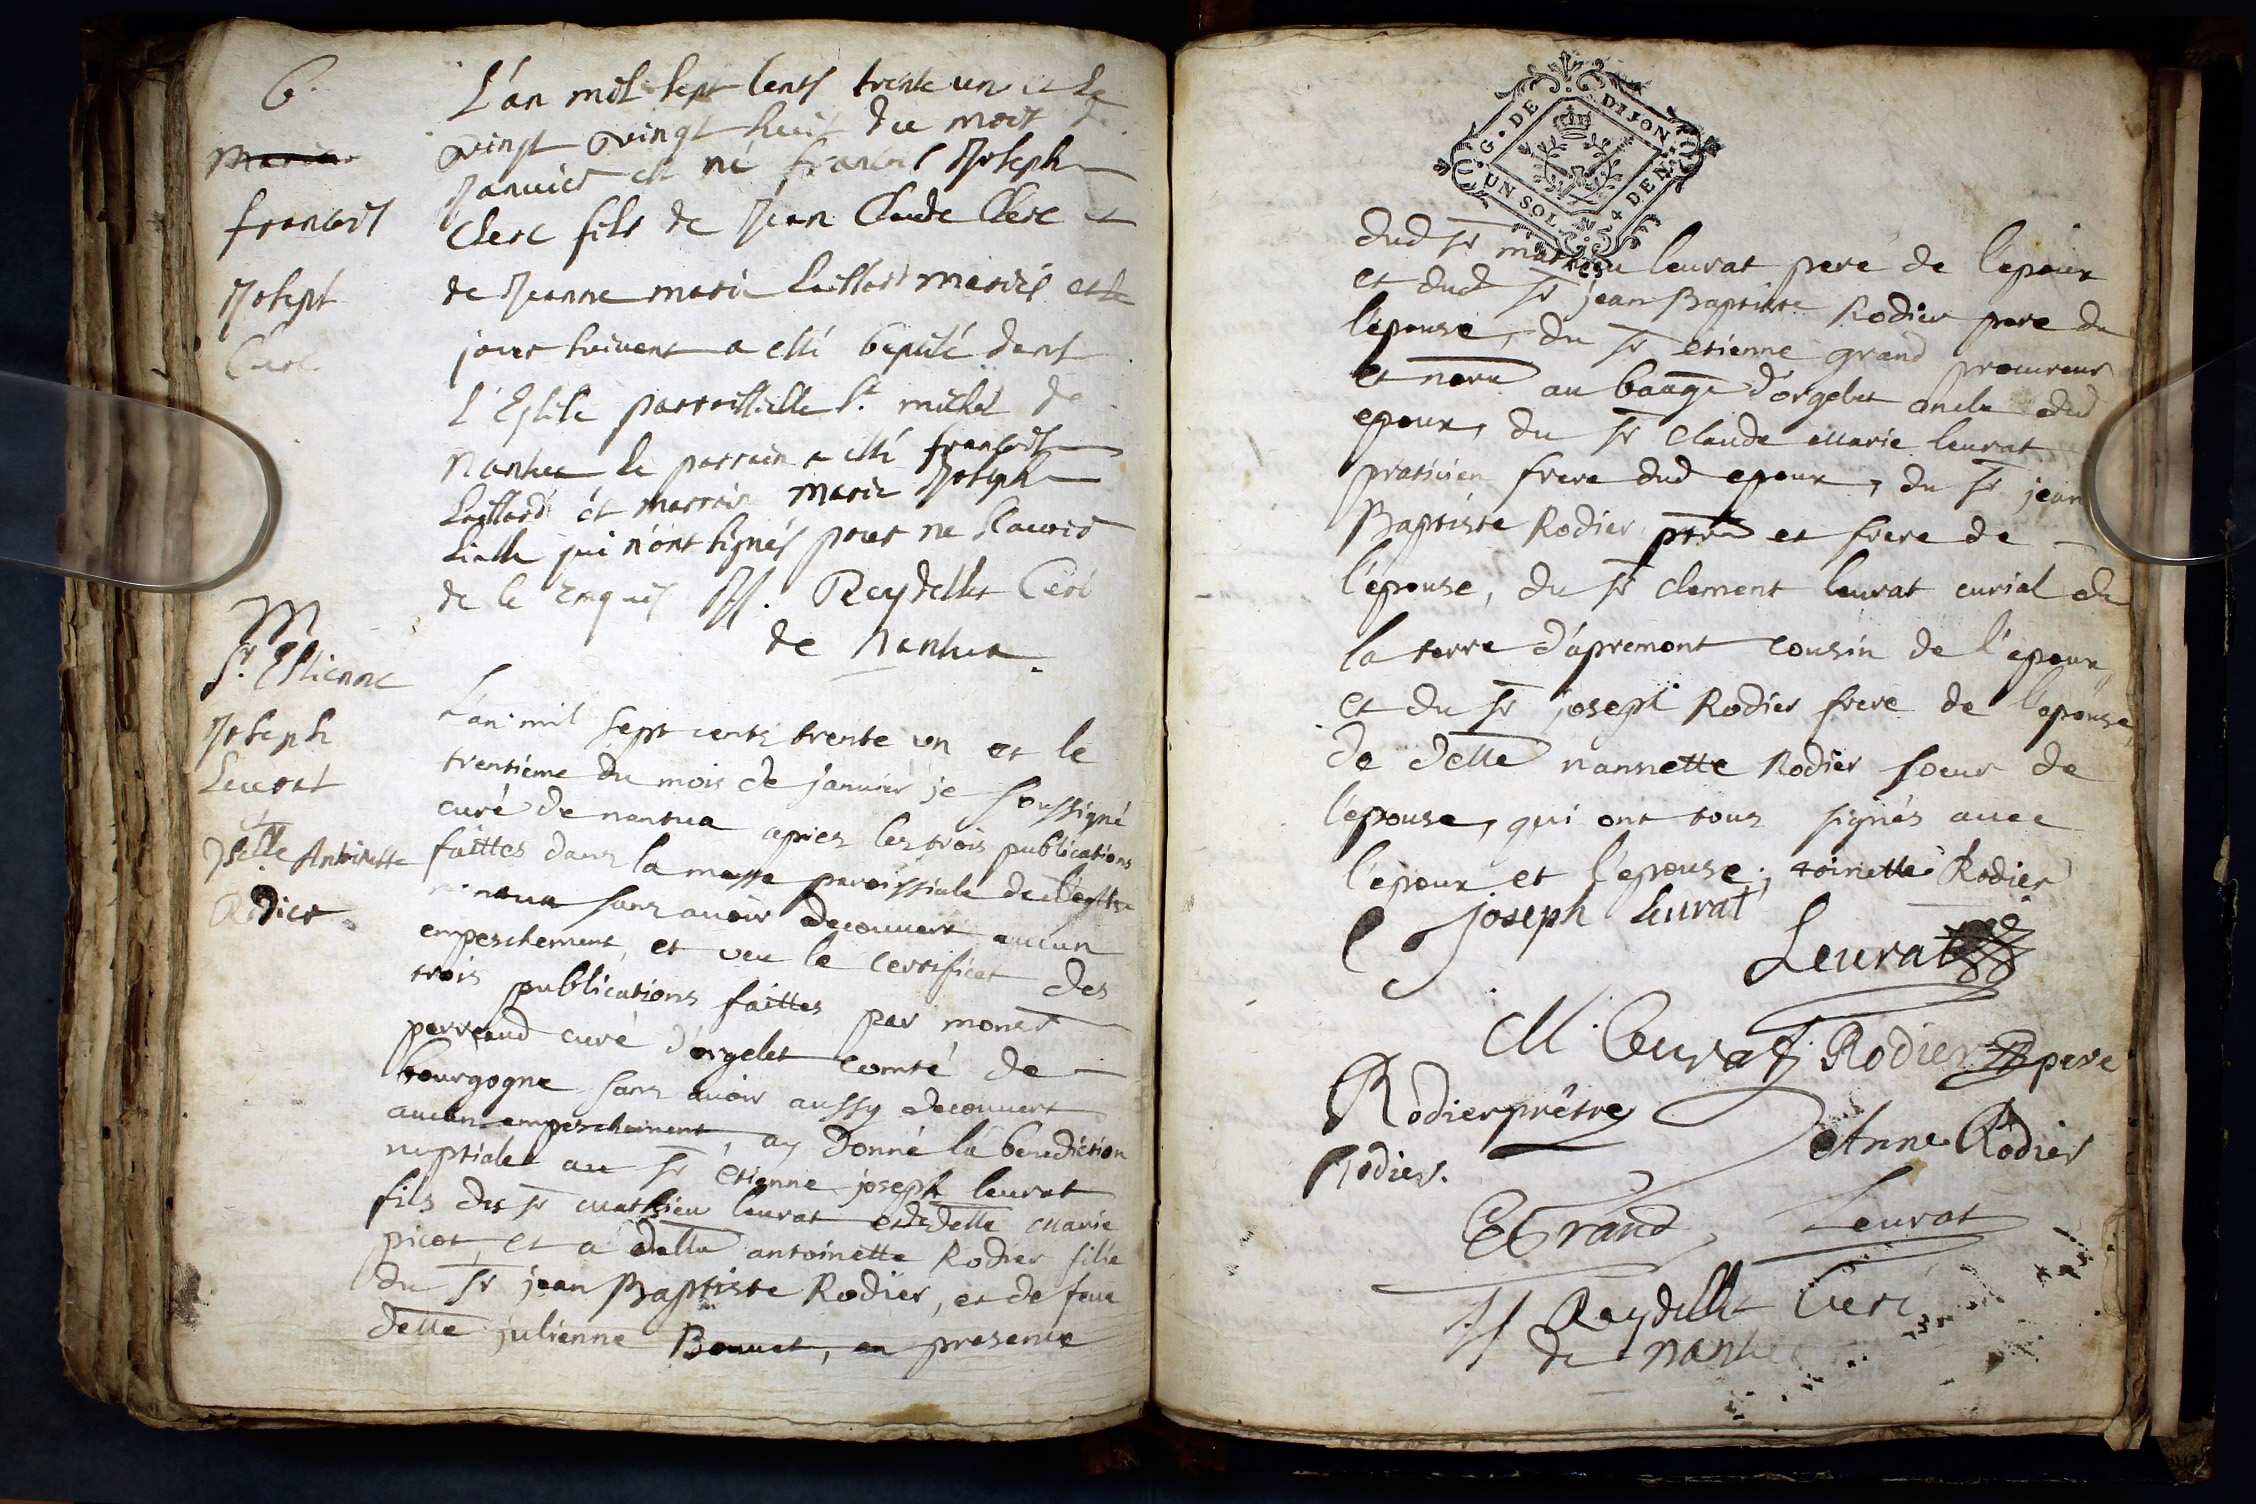 6.
Maria
françois
Joseph
Clerc
L'an mil sept cents trente un et le
vingt vingt huit du mois de
Janvier est né francois Joseph
Clerc fils de Jean Claude Clerc et
de Jeanne marie Laillard mariés et le
jour suivent a esté baptisé dans
l'Eglise parroissielle St. michel de
Nantua le parrain a esté françois
Laillard et marrain marie Joseph
qui n'ont signés pour ne scavoir
de ce Enquis Reydellet Curé
de Nantua
M
Sr. Estienne
Joseph
Leurat
&
Dselle Antoinette
Rodier
L'an mil sept cents trente un et le
trentième du mois de janvier je soussigné
curé de nantua apres les trois publications
faittes dans la messe paroissiale de l'eglise
nantua sans avoir decouvert aucun
empeschement, et veu le certificat des
trois publications faittes par monsr
perreaud curé d'orgelet comté de
bourgogne sans avoir aussy decouvert
aucun empeschement, ay donné la benediction
nuptiale au sr étienne joseph leurat
fils des sr mathieu leurat et de delle marie
picot, et a delle antoinette Rodier fille
du sr jean Baptiste Rodier, et de feue
delle julienne Bouuet, en presence
G. DE DIJON
UN SOL 4 DEN.
dud sr mathieu leurat pere de l'epoux
et dud sr jean Baptiste Rodier pere de
l'epouse, du sr etienne grand procureur
et nore au baage d'orgelet oncle dud
epoux, du sr claude marie leurat
praticien frere dud epoux, du sr jean
Baptiste Rodier ptre et frere de
l'epouse, du sr clement leurat curial de
la terre d'apremont cousin de l'epoux,
et du sr joseph Rodier frere de l'epouse,
de delle nannette Rodier soeur de
l'epouse, qui ont tous signés avec
l'epoux et l'epouse; toinette Rodier
joseph leurat
Leurat
M. Leurat Rodier pere
Rodier prêtre
Anne Rodier
Rodier.
E Grand Leurat
Reydellet Curé
de Nantua